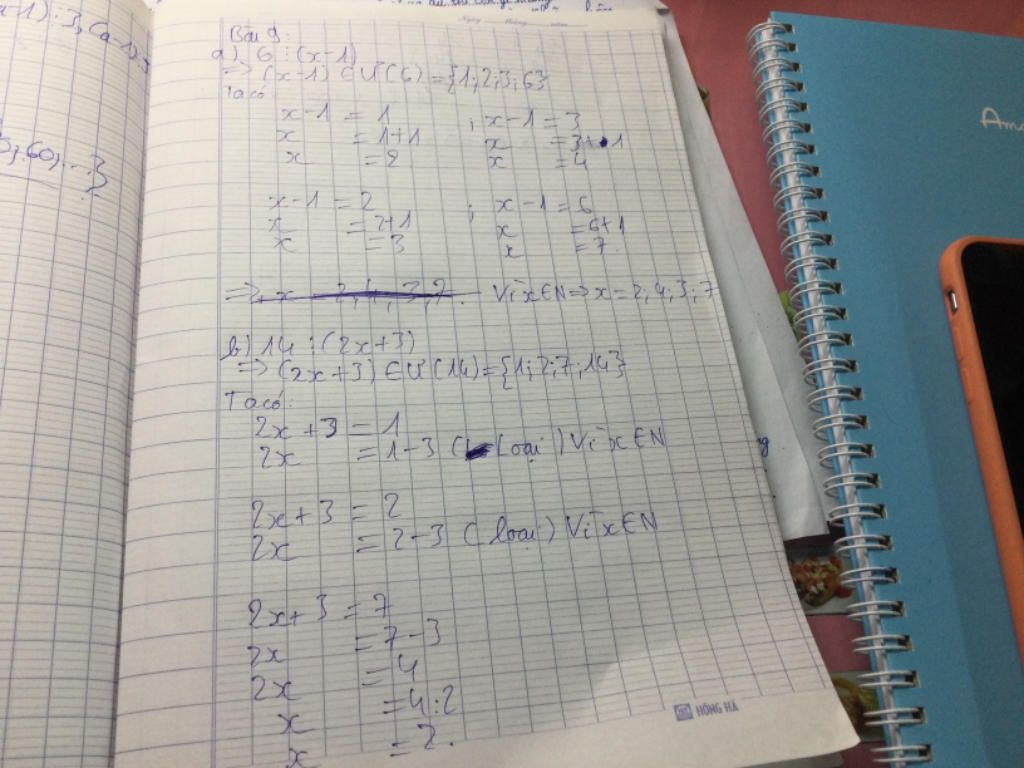 Ngày tháng năm
x-1) ⋮ 3, (a-1)
,60,...}
Bài 9:
a) 6 ⋮ (x-1)
=> (x-1) ∈ Ư(6) = {1;2;3;6}
Ta có
x-1 = 1 ; x-1 = 3
x = 1+1 x = 3+1
x = 2 x = 4
x-1 = 2 ; x-1 = 6
x = 2+1 x = 6+1
x = 3 x = 7.
=> Vì x∈N => x = 2,4,3,7
b) 14 ⋮ (2x+3)
=> (2x+3) ∈ Ư(14) = {1;2;7;14}
Ta có:
2x+3 = 1
2x = 1-3 (Loại) Vì x∈N
2x+3 = 2
2x = 2-3 (loại) Vì x∈N
2x+3 = 7
2x = 7-3
2x = 4
x = 4:2
x = 2.
HỒNG HÀ